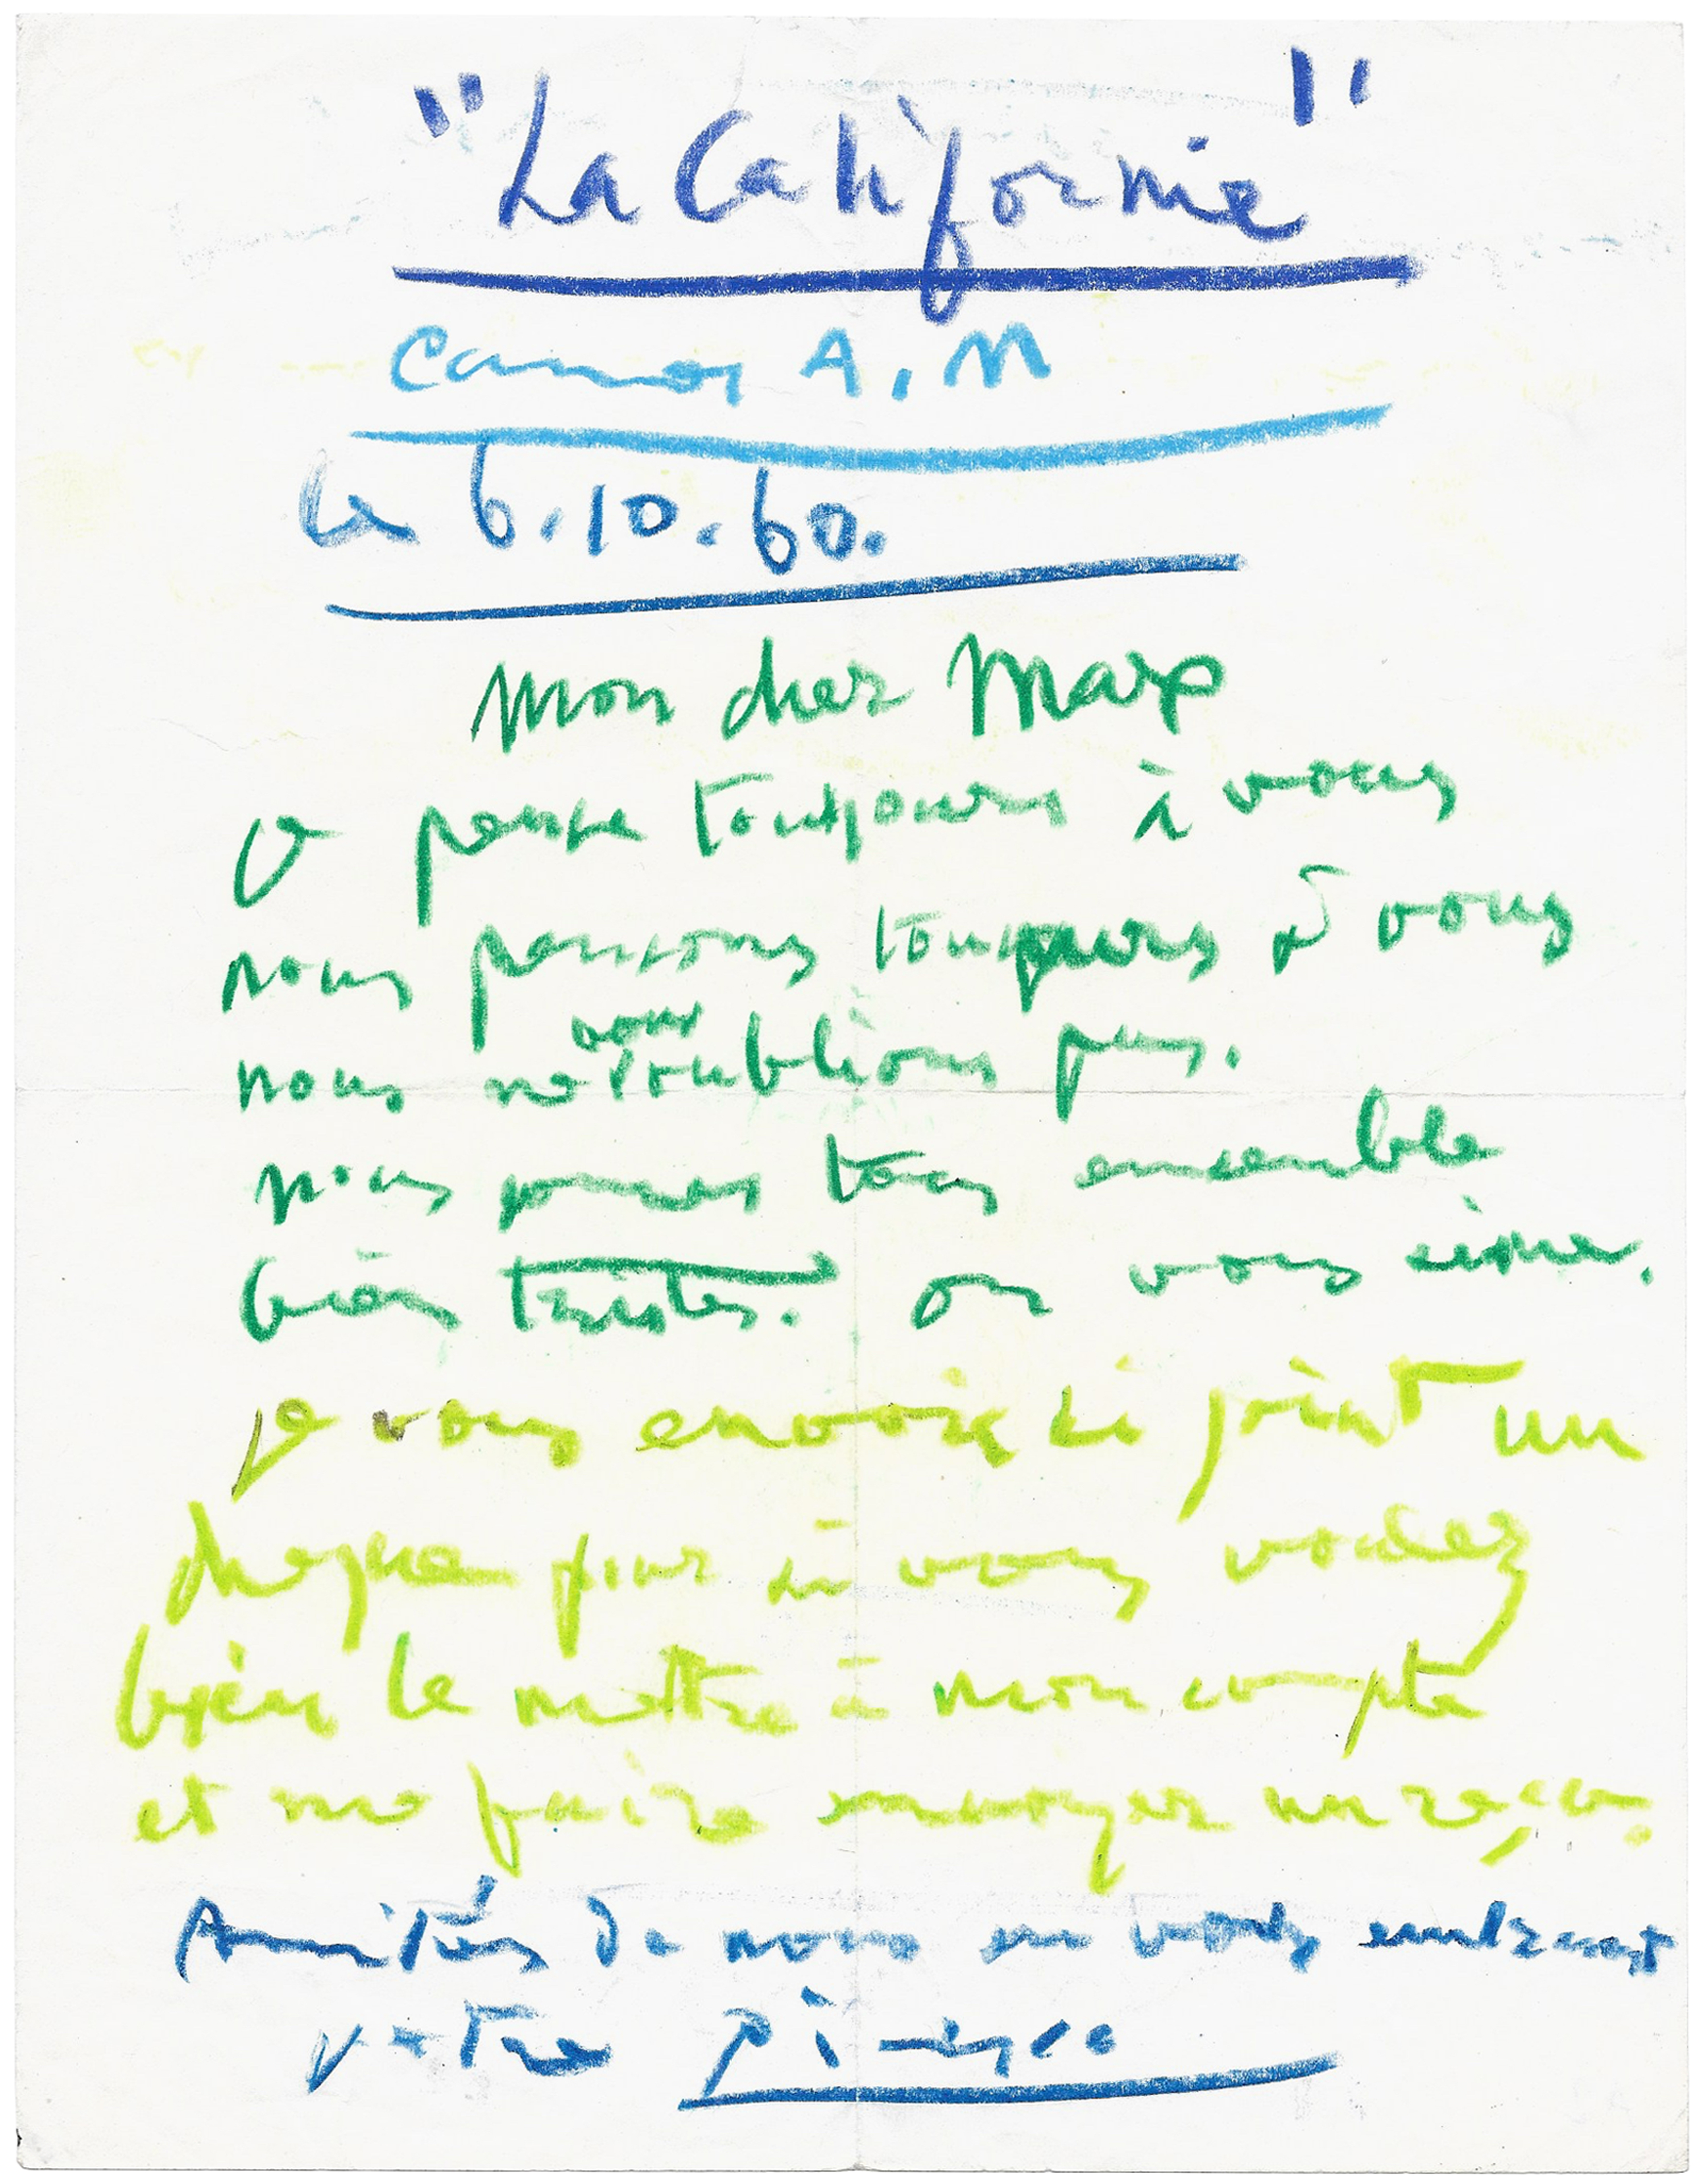 "La Californie"
Cannes A. M
le 6.10.60.
Mon cher Max
je pense toujours à vous
nous pensons toujours à vous
nous ne vous oublions pas.
nous sommes tous ensemble
bien tristes. on vous aime.
je vous envoie ci joint un
cheque pour si vous voulez
bien le mettre à mon compte
et me faire envoyer un reçu.
Amitiés de nous en vous embrassant
votre Picasso